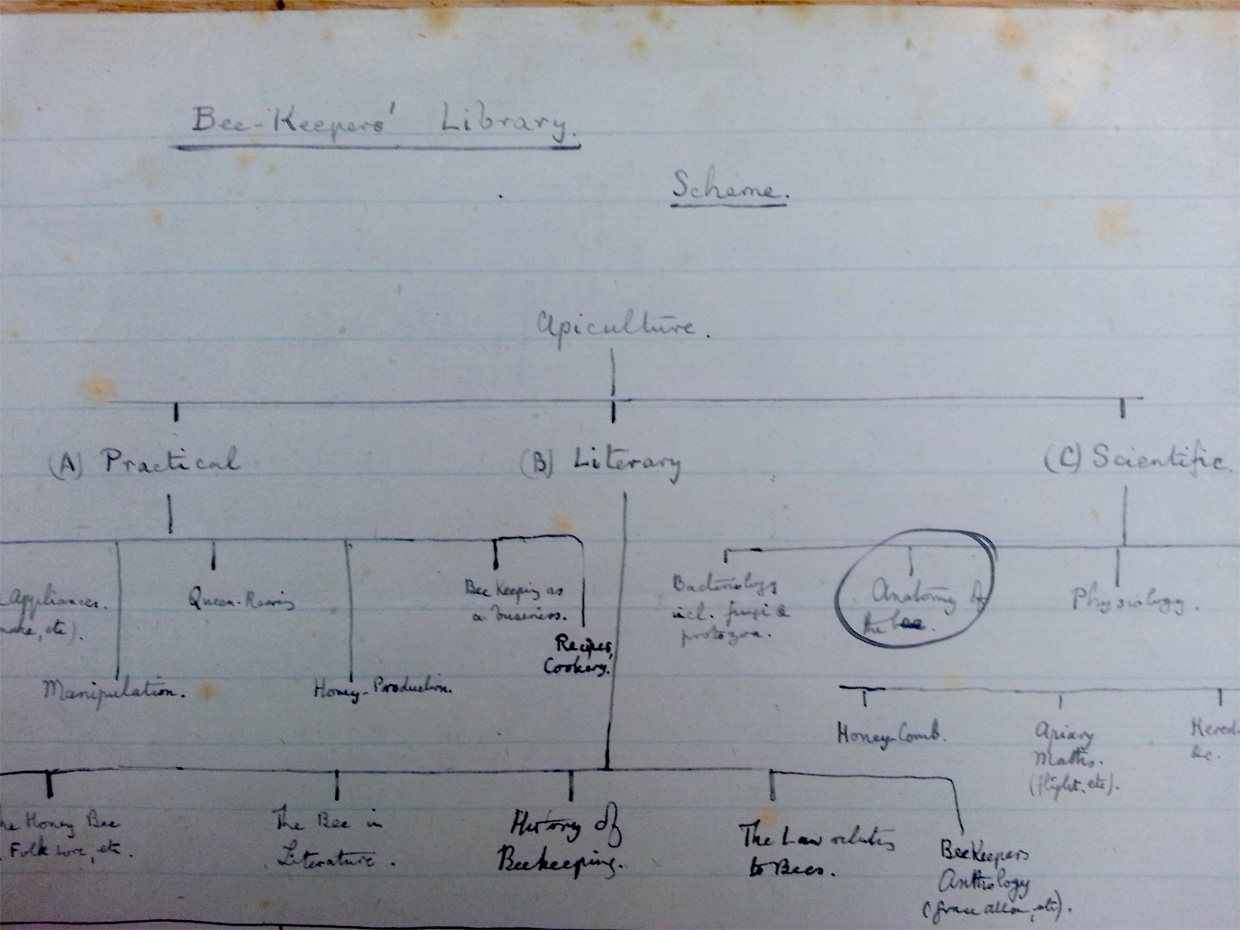 Bee-Keepers' Library.
Scheme.
Apiculture.
(A) Practical
(B) Literary
(C) Scientific.
Appliances.
etc).
Queen-Rearing
Bee Keeping as
a business.
Recipes,
Cookery.
Manipulation.
Honey-Production.
Bacteriology
incl. fungi &
protozoa.
Anatomy of
the bee.
Physiology.
Honey-Comb.
Apiary
Maths.
(flight, etc).
Hered
&c.
he Honey Bee
Folk Lore, etc.
The Bee in
Literature.
History of
Beekeeping.
The Law relates
to Bees.
BeeKeepers
Anthology
(Grace allen, etc).